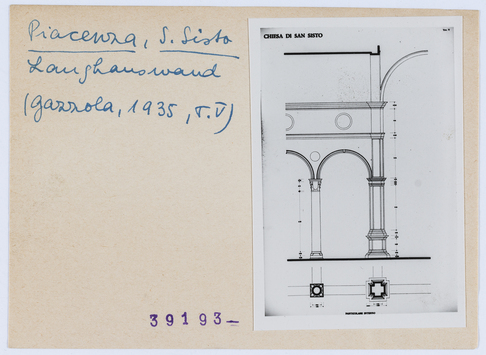 Piacenza, S. Sisto
Langhauswand
(Gazzola, 1935, T. V)
CHIESA DI SAN SISTO
PARTICOLARE INTERNO
39193-